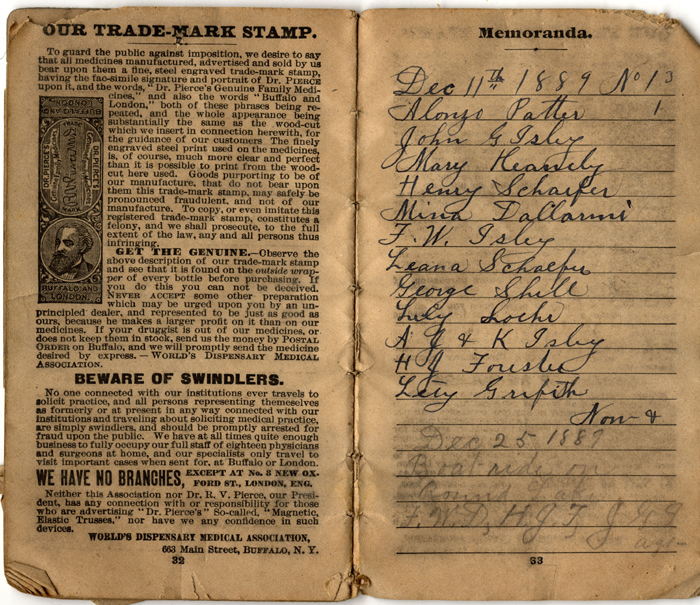 OUR TRADE-MARK STAMP.
To guard the public against imposition, we desire to say
that all medicines manufactured, advertised and sold by us
bear upon them a fine, steel engraved trade-mark stamp,
having the fac-simile signature and portrait of DR. PIERCE
upon it, and the words, "Dr. Pierce's Genuine Family Medi-
cines," and also the words "Buffalo and
London," both of these phrases being re-
peated, and the whole appearance being
substantially the same as the wood-cut
which we insert in connection herewith, for
the guidance of our customers The finely
engraved steel print used on the medicines,
is, of course, much more clear and perfect
than it is possible to print from the wood-
cut here used. Goods purporting to be of
our manufacture, that do not bear upon
them this trade-mark stamp, may safely be
pronounced fraudulent, and not of our
manufacture. To copy, or even imitate this
registered trade-mark stamp, constitutes a
felony, and we shall prosecute, to the full
extent of the law, any and all persons thus
infringing.
GET THE GENUINE.—Observe the
above description of our trade-mark stamp
and see that it is found on the outside wrap-
per of every bottle before purchasing. If
you do this you can not be deceived.
NEVER ACCEPT some other preparation
which may be urged upon you by an un-
principled dealer, and represented to be just as good as
ours, because he makes a larger profit on it than on our
medicines. If your druggist is out of our medicines, or
does not keep them in stock, send us the money by POSTAL
ORDER on Buffalo, and we will promptly send the medicine
desired by express. — WORLD'S DISPENSARY MEDICAL
ASSOCIATION.
BUFFALO AND
LONDON.
BEWARE OF SWINDLERS.
No one connected with our institutions ever travels to
solicit practice, and all persons representing themselves
as formerly or at present in any way connected with our
institutions and traveling about soliciting medical practice,
are simply swindlers, and should be promptly arrested for
fraud upon the public. We have at all times quite enough
business to fully occupy our full staff of eighteen physicians
and surgeons at home, and our specialists only travel to
visit important cases when sent for, at Buffalo or London.
WE HAVE NO BRANCHES, EXCEPT AT No. 3 NEW OX-
FORD ST., LONDON, ENG.
Neither this Association nor Dr. R. V. Pierce, our Presi-
dent, has any connection with or responsibility for those
who are advertising "Dr. Pierce's" So-called, "Magnetic,
Elastic Trusses," nor have we any confidence in such
devices.
WORLD'S DISPENSARY MEDICAL ASSOCIATION,
663 Main Street, BUFFALO, N. Y.
32
Memoranda.
Dec 11th 1889 No 13
Alonzo Patter 1
John G Isby
Mary
Henry Schaefer
Mina Dallarmi
F. W. Isby
Leana Schaefer
George Shill
Lucy
A J & K Isby
H J
Lety Grifith
Now &
Dec 25 1889
Boat ride on
F. W. D, H J
33